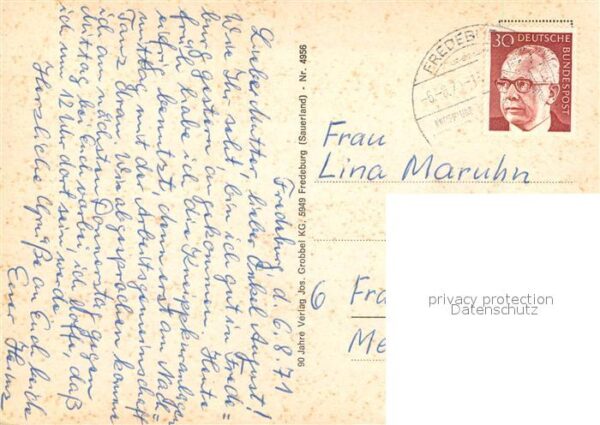 Fredeburg, d. 6.8.71
Liebe Mutter, lieber Onkel August!
Wie Ihr seht, bin ich gut in Frede=
burg gestern angekommen. Heute
früh habe ich die Kneippkuranlagen
benutzt, denn erst am Nach=
mittag mit der Arbeitsgemeinschaft
Tanz dran. Wie abgesprochen komme
ich am nächsten Donnerstag gegen
Mittag bei Euch vorbei, ich hoffe, daß
ich um 12 Uhr dort sein werde.
Herzliche Grüße an Euch beide
Euer Heinz
90 Jahre Verlag Jos. Grobbel KG, 5949 Fredeburg (Sauerland) - Nr. 4956
FREDEBURG
30 DEUTSCHE BUNDESPOST
Frau
Lina Maruhn
6 Fra
Me
privacy protection
Datenschutz